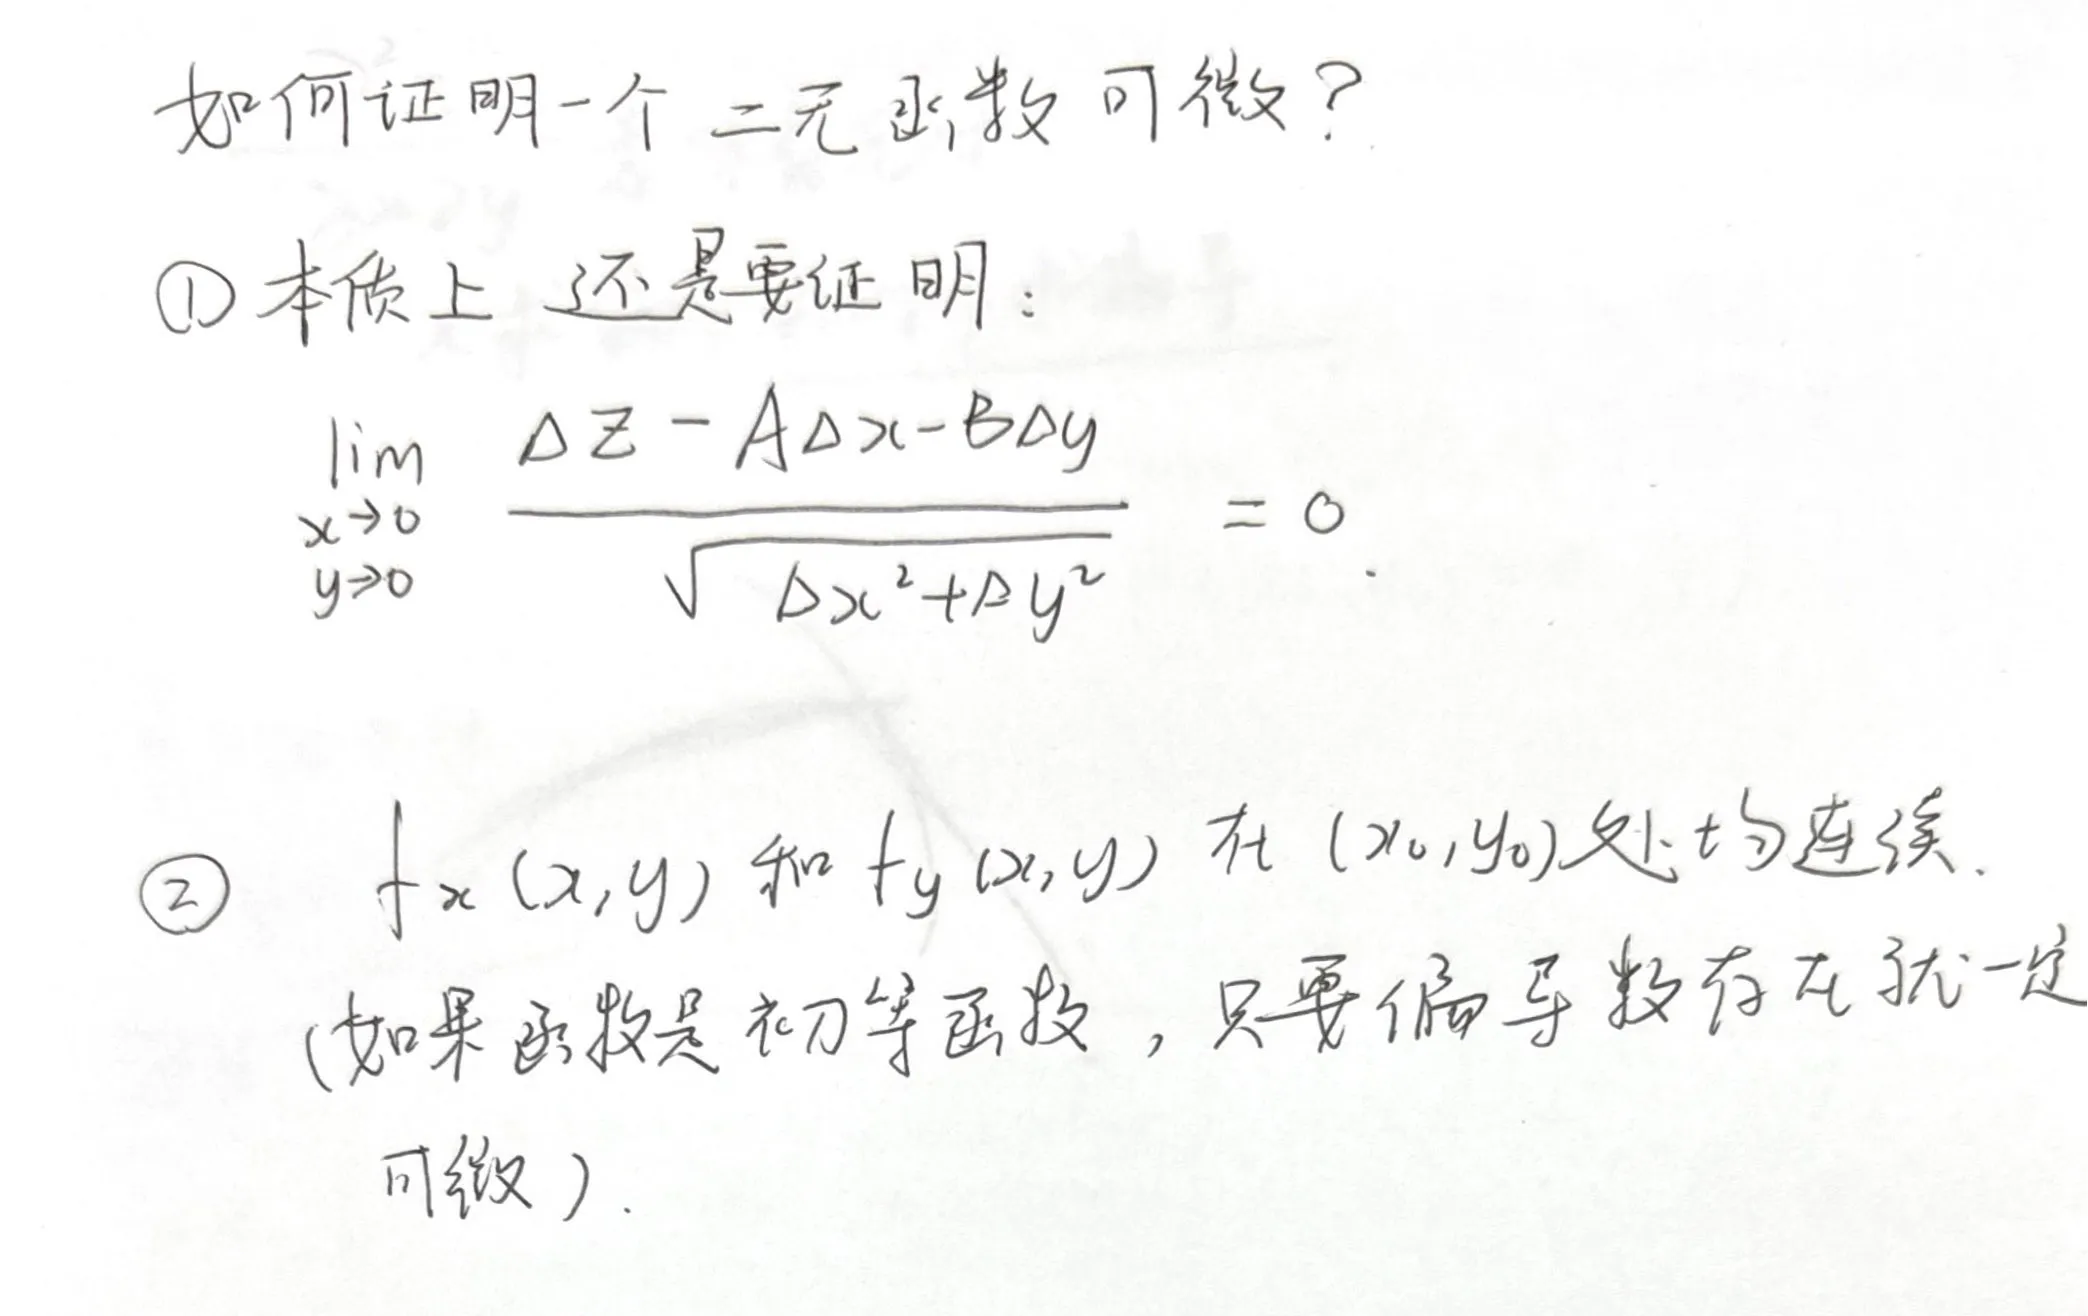 如何证明一个二元函数可微?
①本质上还是要证明:
lim ΔZ - AΔx - BΔy
x→0
y→0
√Δx²+Δy²
= 0.
② fx(x,y) 和 fy(x,y) 在 (x0,y0)处均连续.
(如果函数是初等函数,只要偏导数存在就一定
可微).